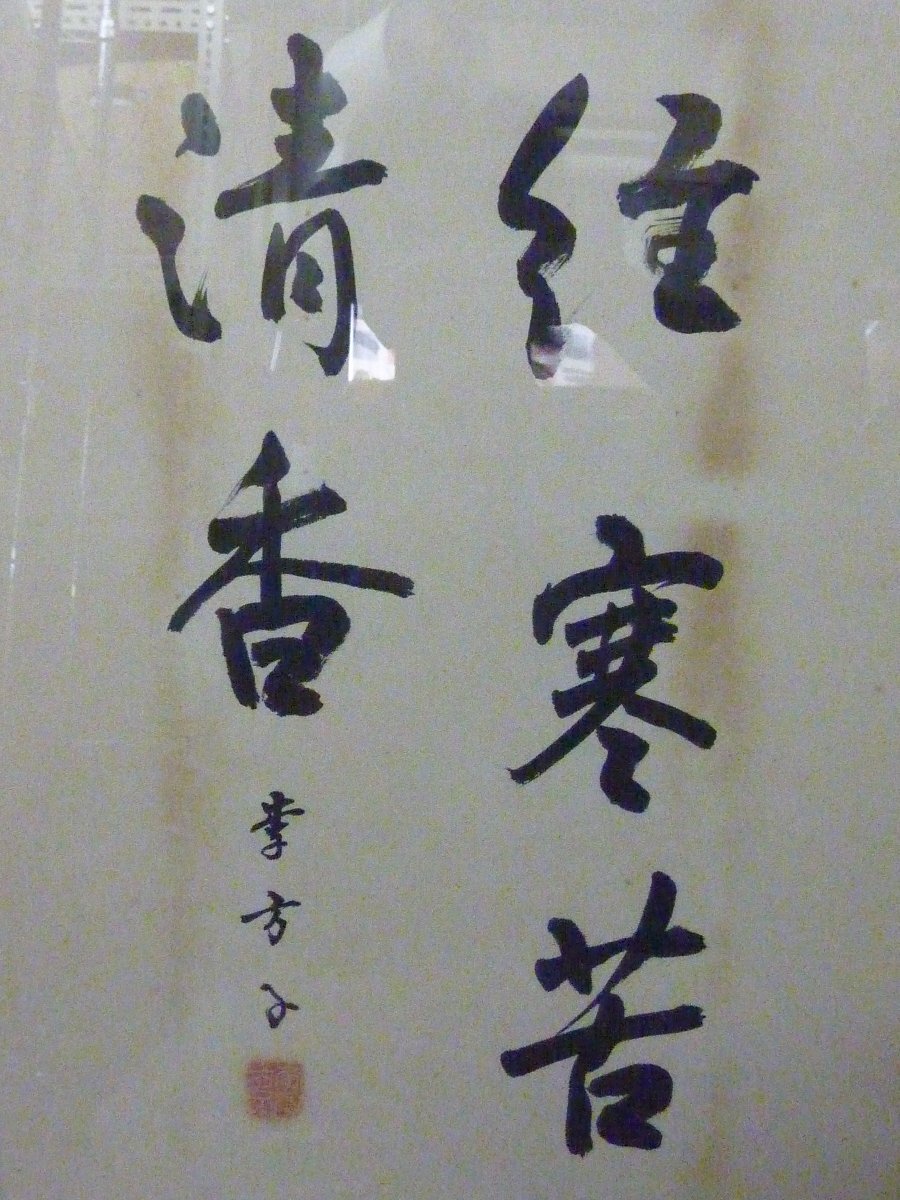 経寒苦
清香
李方子